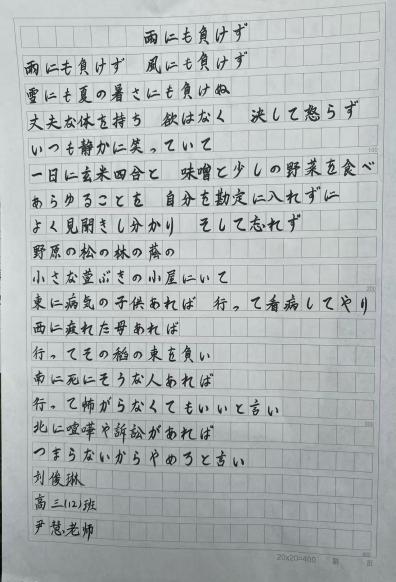 雨にも負けず
雨にも負けず 風にも負けず
雪にも夏の暑さにも負けぬ
丈夫な体を持ち 欲はなく 決して怒らず
いつも静かに笑っていて
一日に玄米四合と 味噌と少しの野菜を食べ
あらゆることを 自分を勘定に入れずに
よく見聞きし分かり そして忘れず
野原の松の林の蔭の
小さな萱ぶきの小屋にいて
東に病気の子供あれば 行って看病してやり
西に疲れた母あれば
行ってその稲の束を負い
南に死にそうな人あれば
行って怖がらなくてもいいと言い
北に喧嘩や訴訟があれば
つまらないからやめろと言い
刘俊琳
高三(12)班
尹慧老师
20x20=400